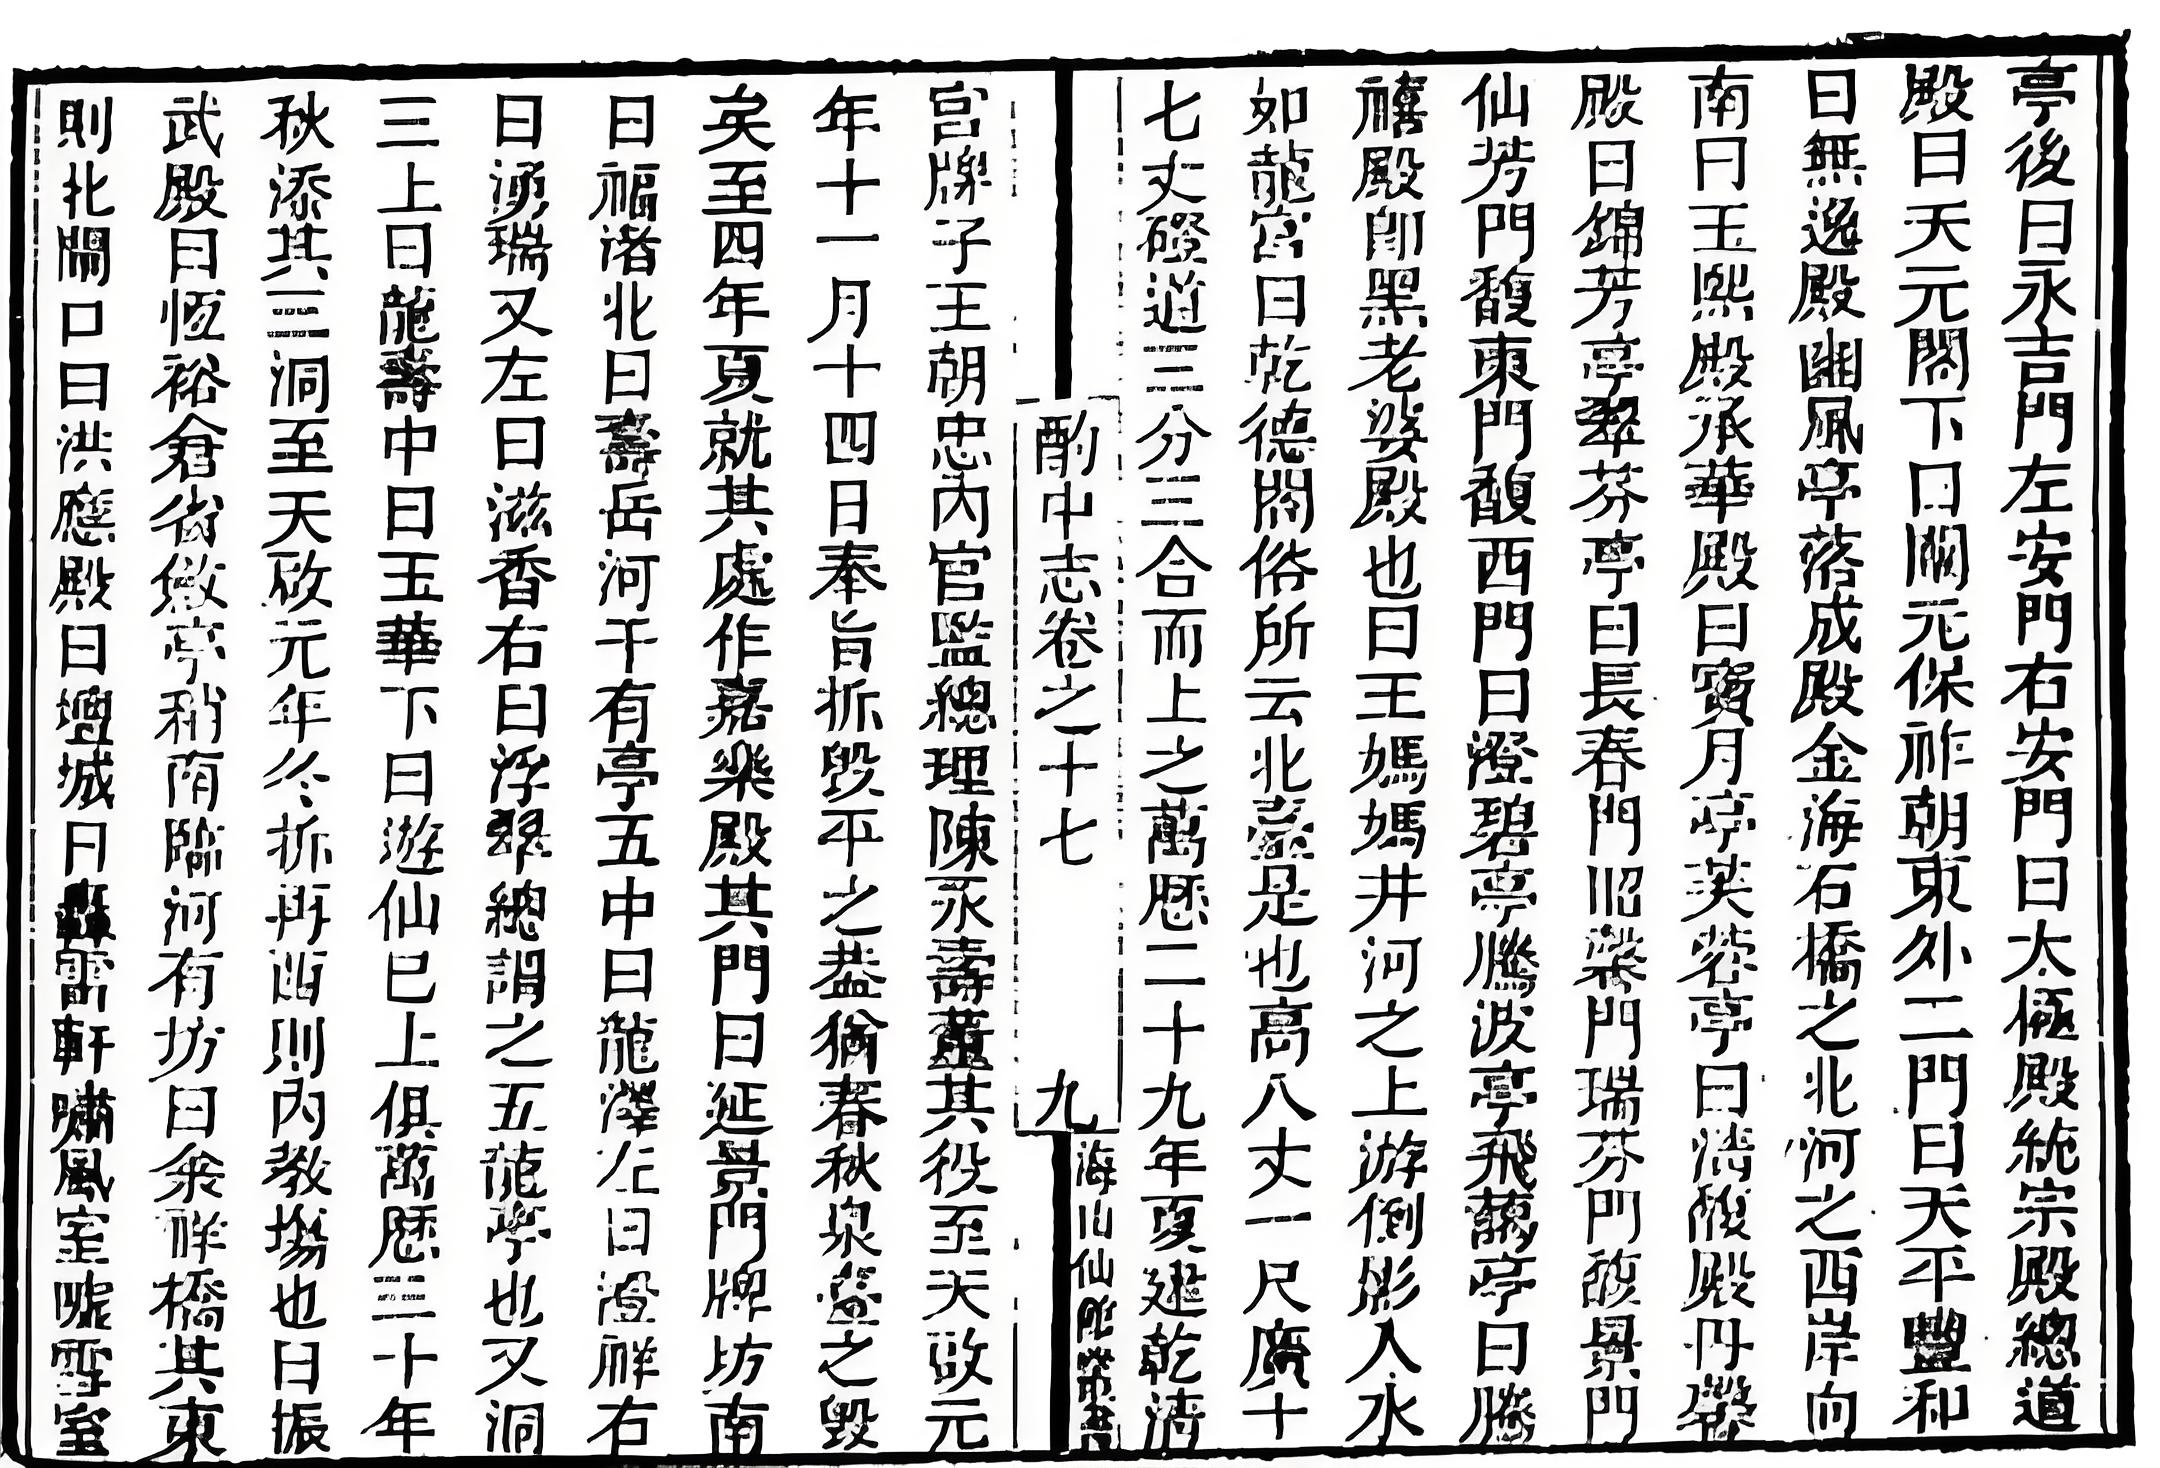 亭後曰永吉門左安門右安門曰太極殿統宗殿總道
殿曰天元閣下曰闡元保祚朝東外二門曰天平豐和
曰無逸殿豳風亭落成殿金海石橋之北河之西岸向
南曰玉熙殿承華殿曰寶月亭芙蓉亭曰清馥殿丹馨
殿曰錦芳亭翠芬亭曰長春門昭棨門瑞芬門馥景門
仙芳門馥東門馥西門曰澄碧亭騰波亭飛靄亭曰騰
禧殿卽黑老婆殿也曰王媽媽井河之上游倒影入水
如龍宮曰乾德閣俗所云北臺是也高八丈一尺廣十
七丈磴道三分三合而上之萬歷二十九年夏建乾清
酌中志卷之十七
九
海山仙館叢書
宮牌子王朝忠內官監總理陳永壽董其役至天啟元
年十一月十四日奉旨拆毀平之葢猶春秋泉臺之毀
矣至四年夏就其處作嘉樂殿其門曰延景門牌坊南
曰福渚北曰壽岳河干有亭五中曰龍澤左曰澄祥右
曰湧瑞又左曰滋香右曰浮翠總謂之五龍亭也又洞
三上曰龍壽中曰玉華下曰遊仙已上俱萬歷三十年
秋添其三洞至天啟元年冬拆再西則內教場也曰振
武殿曰恆裕倉省斂亭稍南臨河有坊曰氽祥橋其東
則北閘口曰洪應殿曰壇城曰轟雷軒嘯風室噓雪室